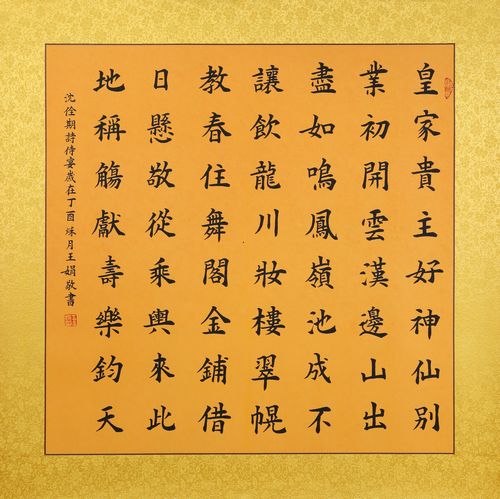 皇家貴主好神仙别
業初開雲漢邊山出
盡如鳴鳳嶺池成不
讓飲龍川妝樓翠幌
教春住舞閣金鋪借
日懸敬從乘輿來此
地稱觴獻壽樂鈞天
沈佺期詩侍宴歲在丁酉秌月王娟敬書